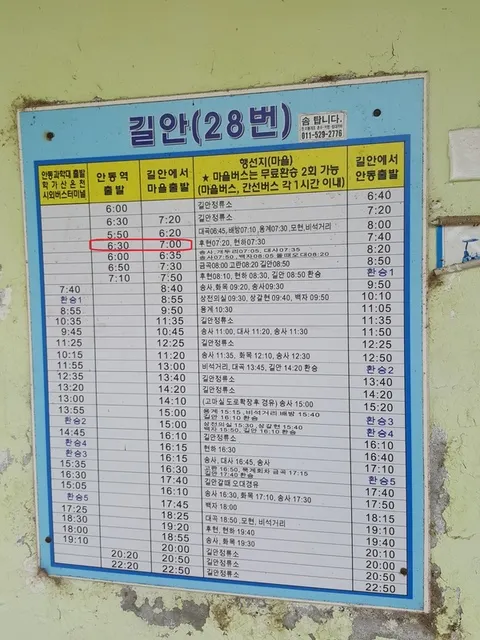 길안(28번)
솜 탑니다.
011-529-2776
안동과학대 출발
학가산온천
시외버스터미널
안동역
출발
길안에서
마을출발
행선지(마을)
★ 마을버스는 무료환승 2회 가능
(마을버스, 간선버스 각 1시간 이내)
길안에서
안동출발
6:00 길안정류소 6:40
6:30 7:20 길안정류소 7:20
5:50 6:20 대곡06:45, 배방07:10, 용계07:30, 모현, 비석거리 8:00
6:30 7:00 후현07:20, 현하07:30 7:40
6:00 6:35 8:20
6:50 7:30 금곡08:00 고란08:20 길안08:50 8:50
7:10 7:50 후현08:10, 현하 08:30, 길안 08:50 환승 환승1
7:40 8:40 송사, 화목 09:20, 송사09:30 9:50
환승1 8:55 상전의실 09:30, 상갈현 09:40, 백자 09:50 10:10
8:55 9:50 용계 10:30 11:05
10:35 11:35 길안정류소 11:35
9:45 10:45 송사 11:00, 대사 11:20, 송사 11:30 11:50
11:25 12:25 길안정류소 12:25
10:15 11:20 송사 11:35, 화목 12:10, 송사 12:30 12:50
11:55 13:00 비석거리, 대곡 13:45, 길안 14:20 환승 환승2
12:35 13:40 길안정류소 13:40
13:20 14:20 길안정류소 14:20
13:00 14:10 (고마실 도로확장후 경유) 송사 15:00 15:20
13:55 15:00 용계 15:15, 비석거리 배방 15:40 환승3
환승2 15:00 상전의실 15:30, 상갈현 15:40 환승4
14:45 16:10 길안정류소 16:10
환승4 16:15 현하 16:30 16:40
환승3 16:15 송사, 대사 16:45, 송사 17:10
15:35 16:30 환승5
16:30 17:40 길안갈때 오대경유 17:40
15:05 16:10 송사 16:30, 화목 17:10, 송사 17:30 17:50
환승5 17:45 백자 18:00 18:15
17:25 18:25 대곡 18:50, 모현, 비석거리 19:10
18:30 19:20 후현, 현하 19:40 19:50
18:00 18:55 송사, 화목 19:30 19:40
19:10 20:00 길안정류소 20:10
20:20 20:50 길안정류소 20:50
22:20 22:50 길안정류소 22:50